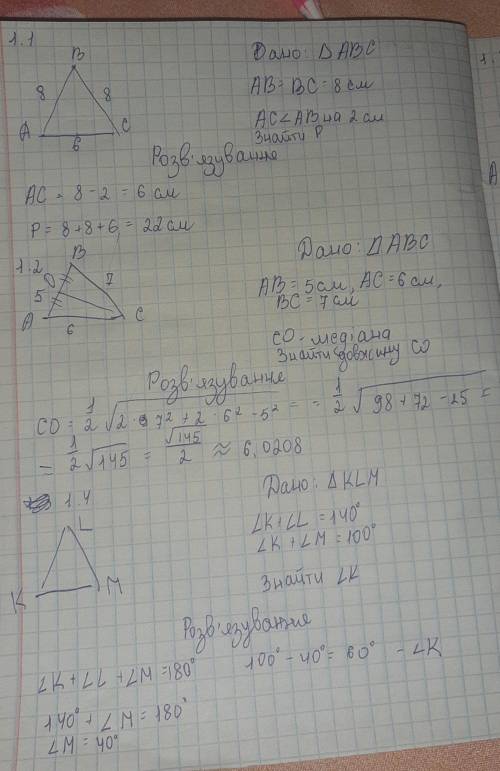 1.1
B
Дано: ΔABC
8 8
AB = BC = 8 см
A C
6
AC < AB на 2 см
Знайти P
Розв'язування
AC = 8 - 2 = 6 см
P = 8 + 8 + 6 = 22 см
1.2
B
Дано: ΔABC
O 7
5
AB = 5 см, AC = 6 см,
BC = 7 см
A C
6
CO - медіана
Знайти довжину CO
Розв'язування
CO = 1/2 √2 · 7² + 2 · 6² - 5² = = 1/2 √98 + 72 - 25 =
= 1/2 √145 = √145/2 ≈ 6,0208
1.4
L
Дано: ΔKLM
∠K + ∠L = 140°
∠K + ∠M = 100°
K M
Знайти ∠K
Розв'язування
∠K + ∠L + ∠M = 180° 100° - 40° = 60° - ∠K
140° + ∠M = 180°
∠M = 40°
1.
A